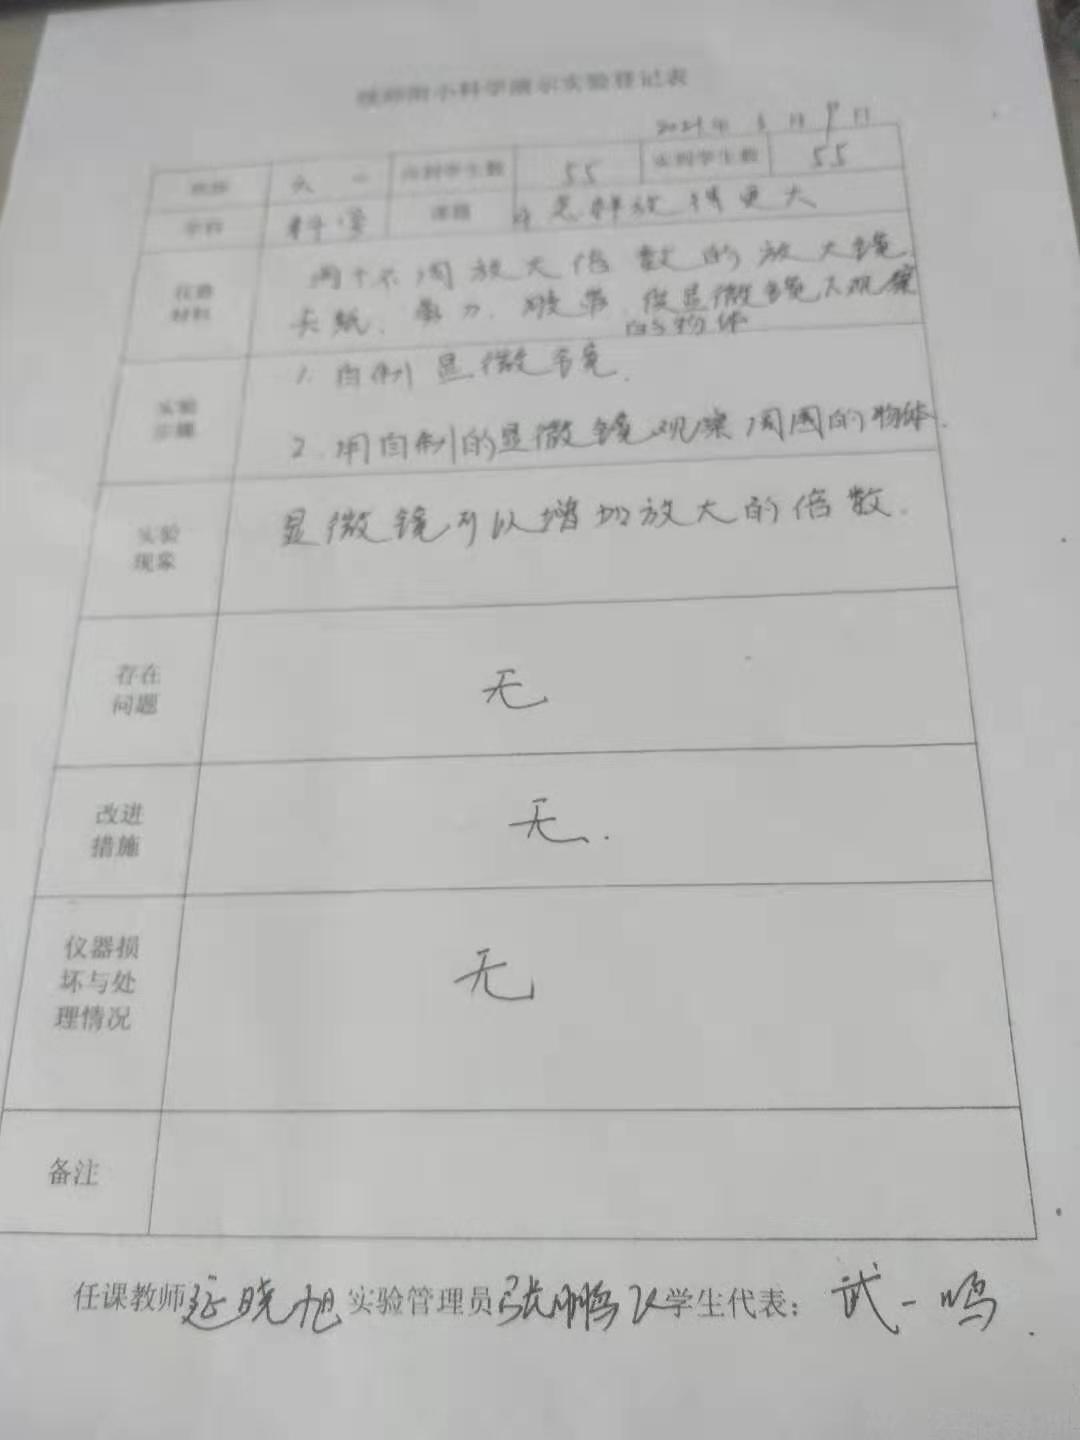 附小科学演示实验登记表
2021年 3月9日
班级 六一 应到学生数 55 实到学生数 55
学科 科学 课题 4怎样放得更大
仪器 两个不同放大倍数的放大镜、
材料 卡纸、剪刀、胶带、显微镜下观察
的物体
实验 1.自制显微镜.
步骤 2.用自制的显微镜观察周围的物体.
实验 显微镜可以增加放大的倍数.
现象
存在
问题 无
改进
措施 无.
仪器损
坏与处 无
理情况
备注
任课教师 延晓旭 实验管理员 张鹏飞 学生代表: 武一鸣